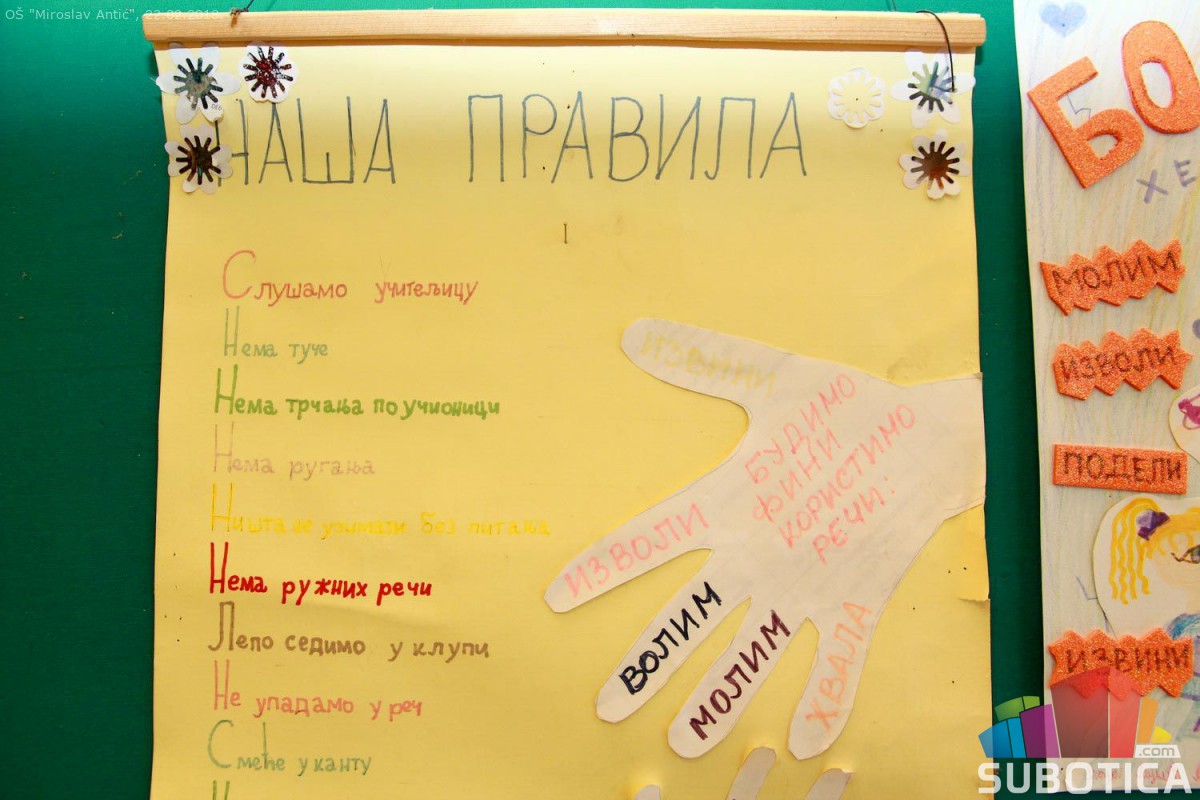 OŠ "Miroslav Antić", 22.02.2018.
НАША ПРАВИЛА
Слушамо учитељицу
Нема туче
Нема трчања по учионици
Нема ругања
Ништа не узимати без питања
Нема ружних речи
Лепо седимо у клупи
Не упадамо у реч
Смеће у канту
ИЗВИНИ
ИЗВОЛИ
ВОЛИМ
МОЛИМ
ХВАЛА
БУДИМО
ФИНИ
КОРИСТИМО
РЕЧИ:
БО
ХЕ
МОЛИМ
ИЗВОЛИ
ПОДЕЛИ
ИЗВИНИ
.com
SUBOTICA